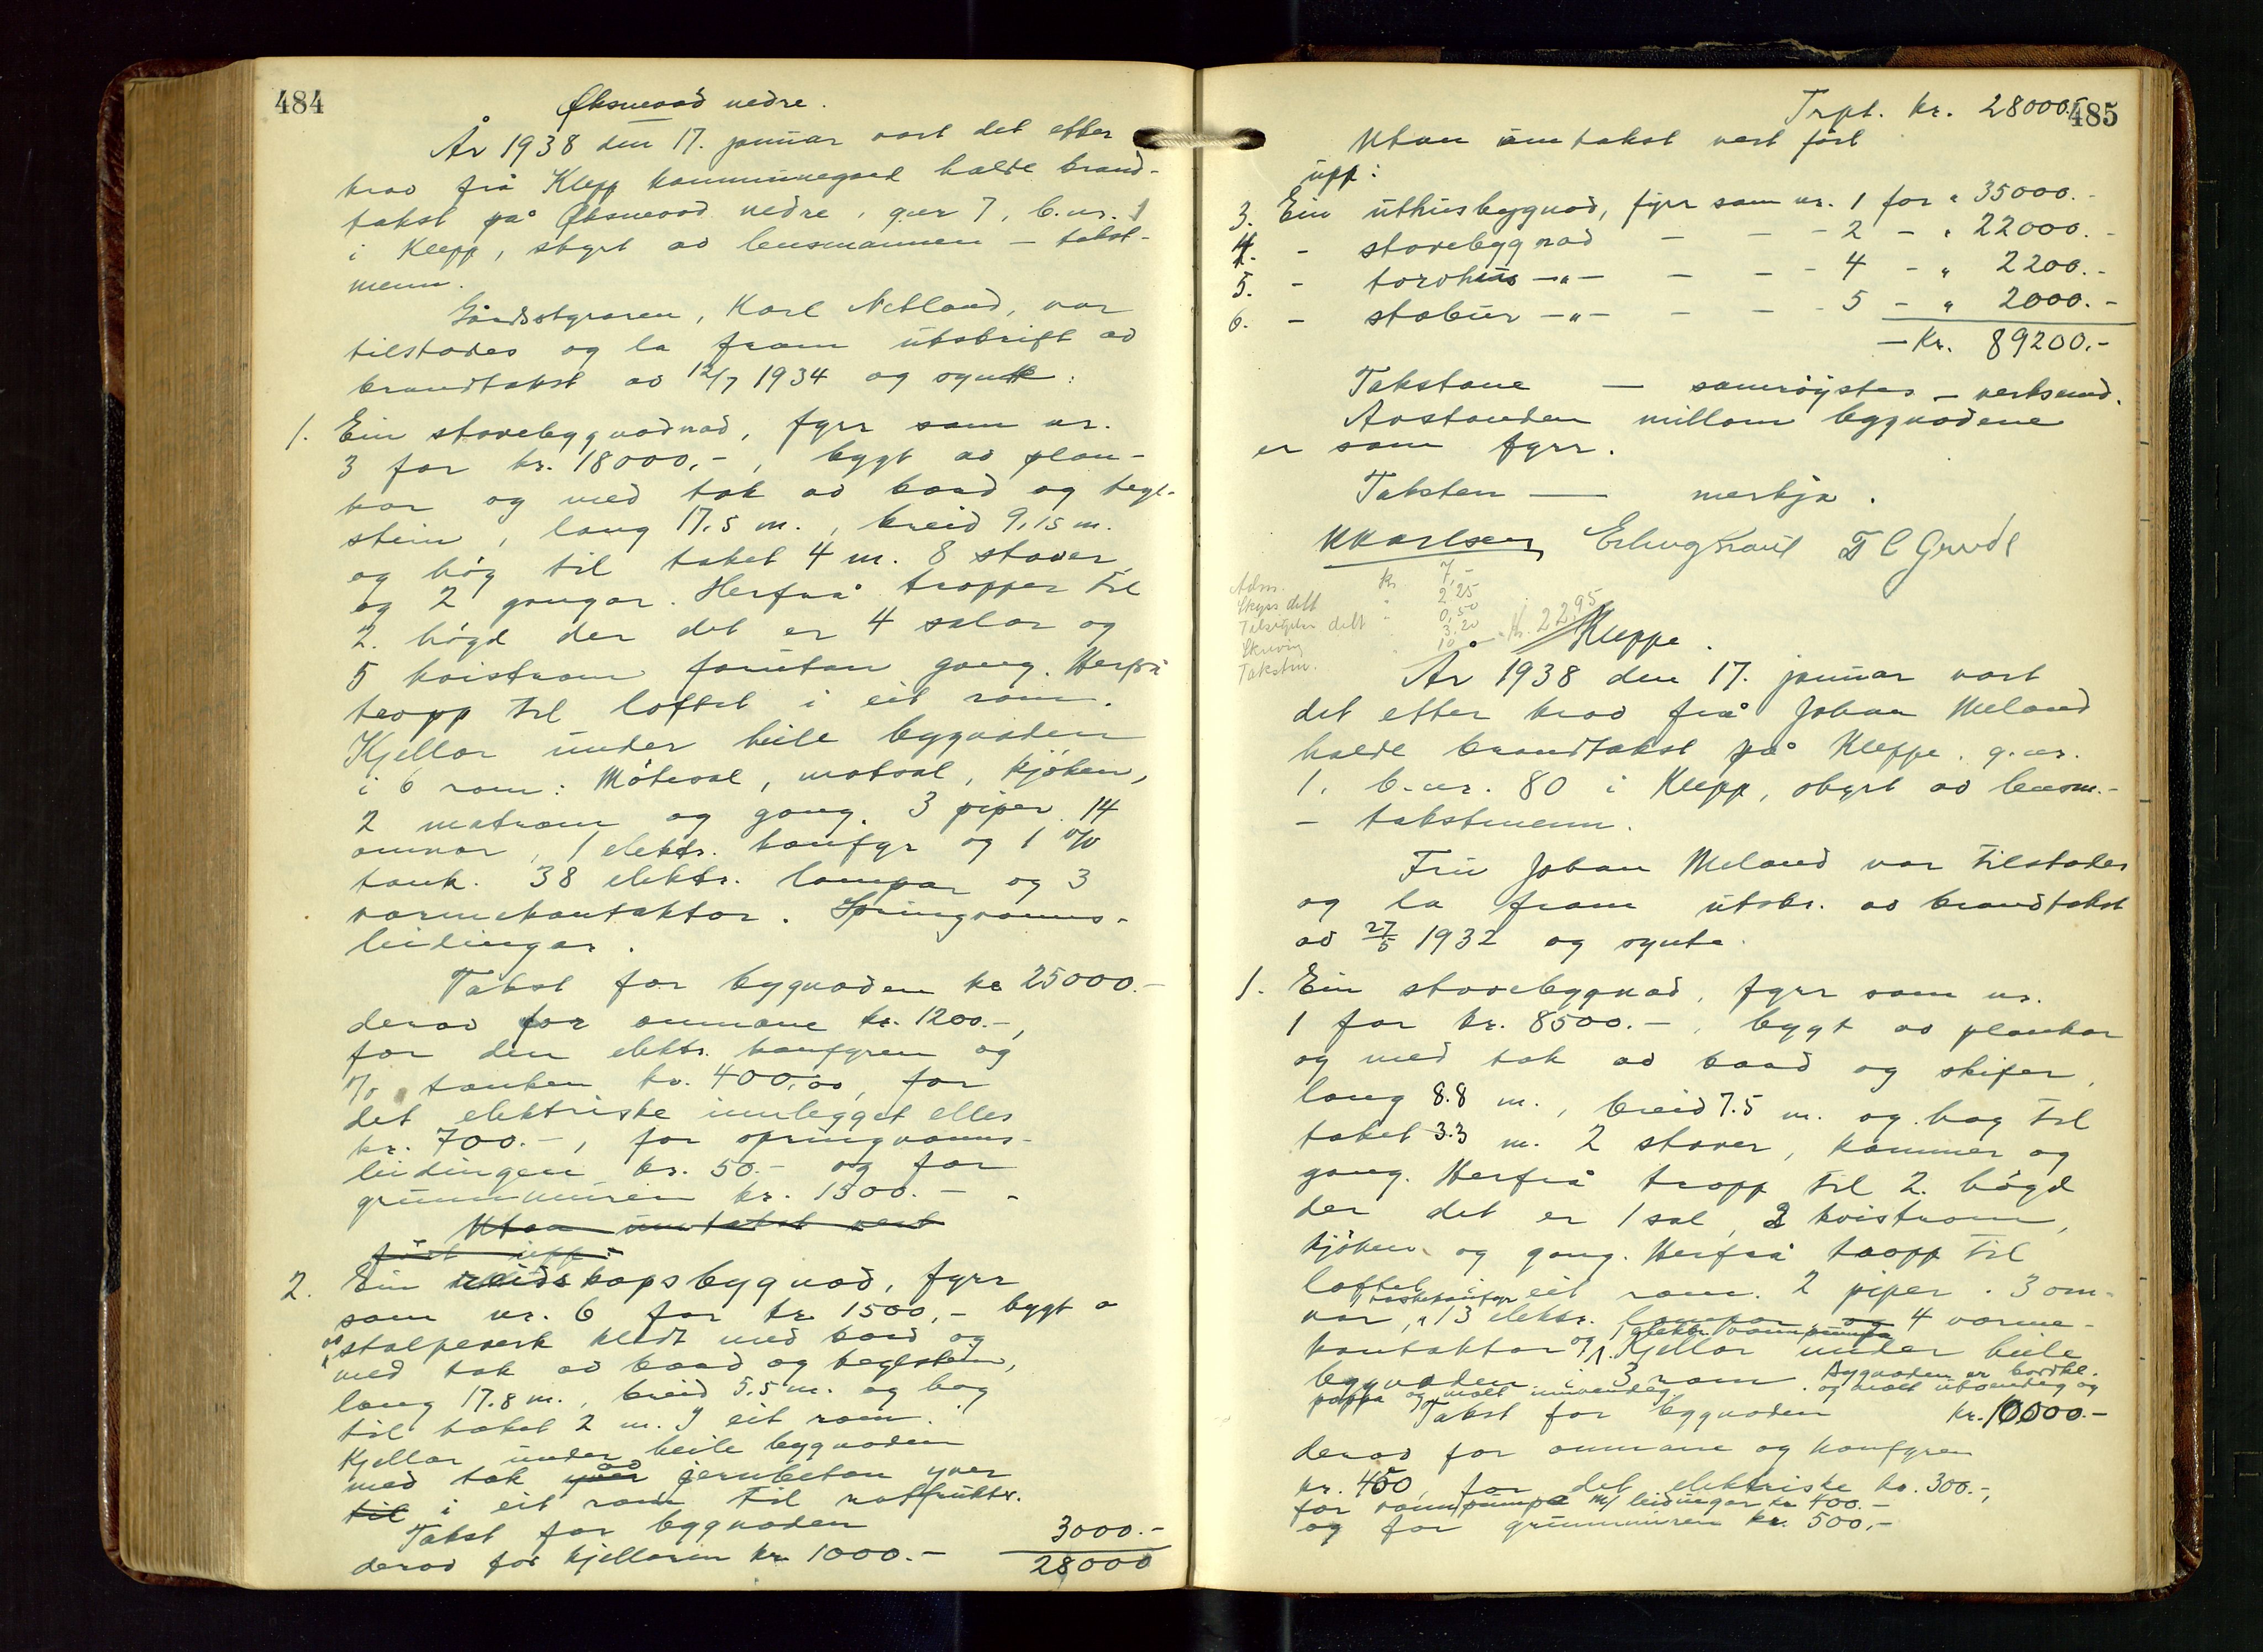 484
Øksnevad nedre.
År 1938 den 17. januar vart det etter
krav frå Klepp kommunegard halde brand-
takst på Øksnevad nedre, g.nr 7, b.nr. 1
i Klepp, styrt av lensmannen – takst-
menn.
Gårdsstyraren, Karl Netland, var
tilstades og la fram utskrift av
brandtakst av 12/7 1934 og synte:
1. Ein stovebygnadnad, fyrr som nr.
3 for kr. 18000,-, bygt av plan-
kar og med tak av bord og tegl-
stein, lang 17.5 m., breid 9,15 m.
og høg til taket 4 m. 8 stover
og 2 gangar. Herfrå tropper til
2. høgd der det er 4 salar og
5 kvistrom forutan gang. Herfrå
tropp til loftet i eit rom.
Kjellar under heile bygnaden
i 6 rom: Møtesal, matsal, kjøken,
2 matrom og gang. 3 piper 14
omnar, 1 elektr. komfyr og 1 v/v
tank. 38 elektr. lampar og 3
varmekontaktar. Springvanns-
leidingar.
Takst for bygnaden kr 25000.-
derav for omnane kr. 1200.-,
for den elektr. komfyren og
v/v tanken kr. 400,00, for
det elektriske innlegget elles
kr. 700.-, for springvanns-
leidingen kr. 50.- og for
grunnmuren kr. 1500.-
Utan umtakst vert
ført upp:
2. Ein reidskapsbygnad, fyrr
som nr. 6 for kr 1500,- bygt a
av stolpeverk kledt med bord og
med tak av bord og teglstein,
lang 17.8 m., breid 5.5 m. og høg
til taket 2 m. I eit rom.
Kjellar under heile bygnaden
med tak yver av jernbetan yver
til i eit rom til rotfrukter.
Takst for bygnaden 3000.-
derav for kjellaren kr 1000.- 28000
485
Trpt. kr. 28000.-
Utan umtakst vert ført
upp:
3. Ein uthusbygnad, fyrr som nr. 1 for " 35000.-
4. - stovebygnad - - - 2 - " 22000.-
5. - torvhus -"- - - - 4 - " 2200.-
6. - stabur -"- - - - 5 - " 2000.-
- Kr. 89200.-
Takstane — samrøystes – verksemd.
Avstanden millom bygnadene
er som fyrr.
Taksten — merkja.
K Karlsen Erling Braut T C Grude
Adm. kr. 7,-
Skyss delt " 2,25
Tilsigelse delt " 0,50
Skriving 3,20
Takstm. 10 - Kr. 22,95
Kleppe.
År 1938 den 17. januar vart
det etter krav frå Johan Meland
halde brandtakst på Kleppe. g.nr.
1. b.nr. 80 i Klepp, styrt av lensm.-
- takstmenn.
Fru Johan Meland var tilstades
og la fram utskr. av brandtakst
av 27/5 1932 og synte.
1. Ein stovebygnad, fyrr som nr.
1 for kr. 8500.-, bygt av plankar
og med tak av bord og skifer,
lang 8.8 m., breid 7.5 m. og høg til
taket 3.3 m. 2 stover, kammer og
gang. Herfrå tropp til 2. høgd
der det er 1 sal, 2 kvistrom,
kjøken og gang. Herfrå tropp til
loftet i eit rom. 2 piper. 3 om-
nar, 13 elektr. lampar, og 4 varme-
kontaktar og 1 elektr. vannpumpe. Kjellar under heile
bygnaden i 3 rom. Bygnaden er bordkl.
pappa og malt innvendeg. og malt utvendeg og
Takst for bygnaden kr. 10000.-
derav for omnane og komfyren
kr. 450, for det elektriske kr. 300.-,
for vannpumpe m/ leidingar kr 400.-
og for grunnmuren kr. 500,-